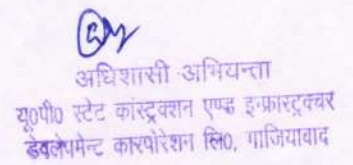 अधिशासी अभियन्ता
यू0पी0 स्टेट कांस्ट्रक्शन एण्ड इन्फ्रास्ट्रक्चर
डेवलेपमेन्ट कारपोरेशन लि0, गाजियाबाद